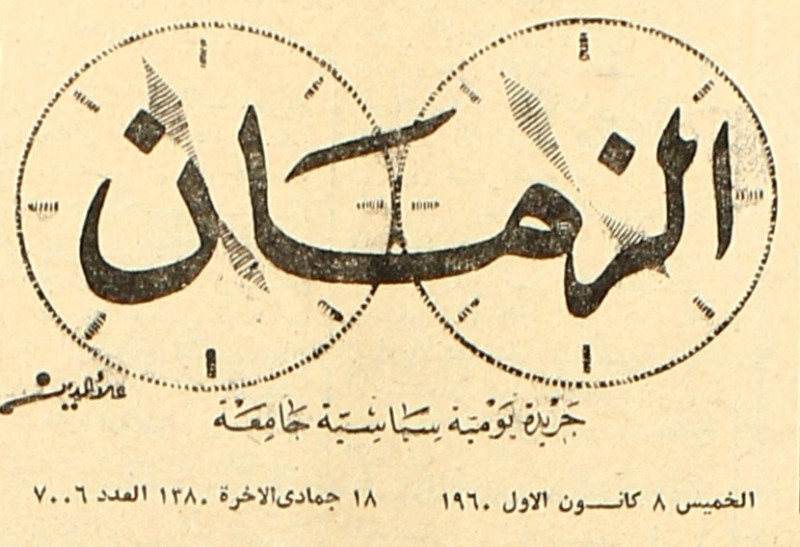 الزمان
علاءالدين
جَريْدة يَوْميّة سيَاسْيّة جَامِعَة
الخميس ٨ كانـــون الاول ١٩٦٠
١٨ جمادى الاخرة ١٣٨٠ العدد ٧٠٠٦